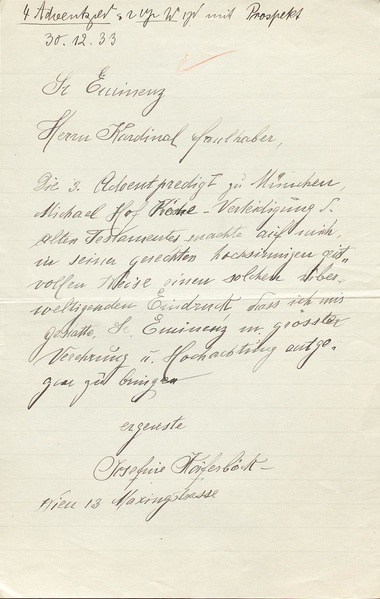 4 Adventspred. mit Prospekt
30.12.33
Sr Eminenz
Herrn Kardinal Faulhaber,
Die 3. Adventpredigt zu München,
Michael Hof Kirche – Verteidigung d.
alten Testamentes machte auf mich,
in seiner gerechten hochsinnigen geist-
vollen Weise einen solchen über-
weltigenden Eindruck, dass ich mir
gestatte, Sr. Eminenz m. grösster
Verehrung u. Hochachtung entge-
gen zu bringen
ergenste
Josefine
Wien 13 Maxingstrasse